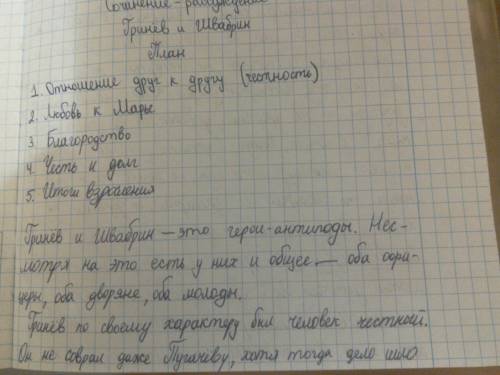 Сочинение-рассуждение
Гринёв и Швабрин
План
1. Отношение друг к другу (честность)
2. Любовь к Марье
3. Благородство
4. Честь и долг
5. Итоги взросления
Гринёв и Швабрин — это герои-антиподы. Нес-
мотря на это есть у них и общее — оба офи-
церы, оба дворяне, оба молоды.
Гринёв по своему характеру был человек честный.
Он не соврал даже Пугачеву, хотя тогда дело шло